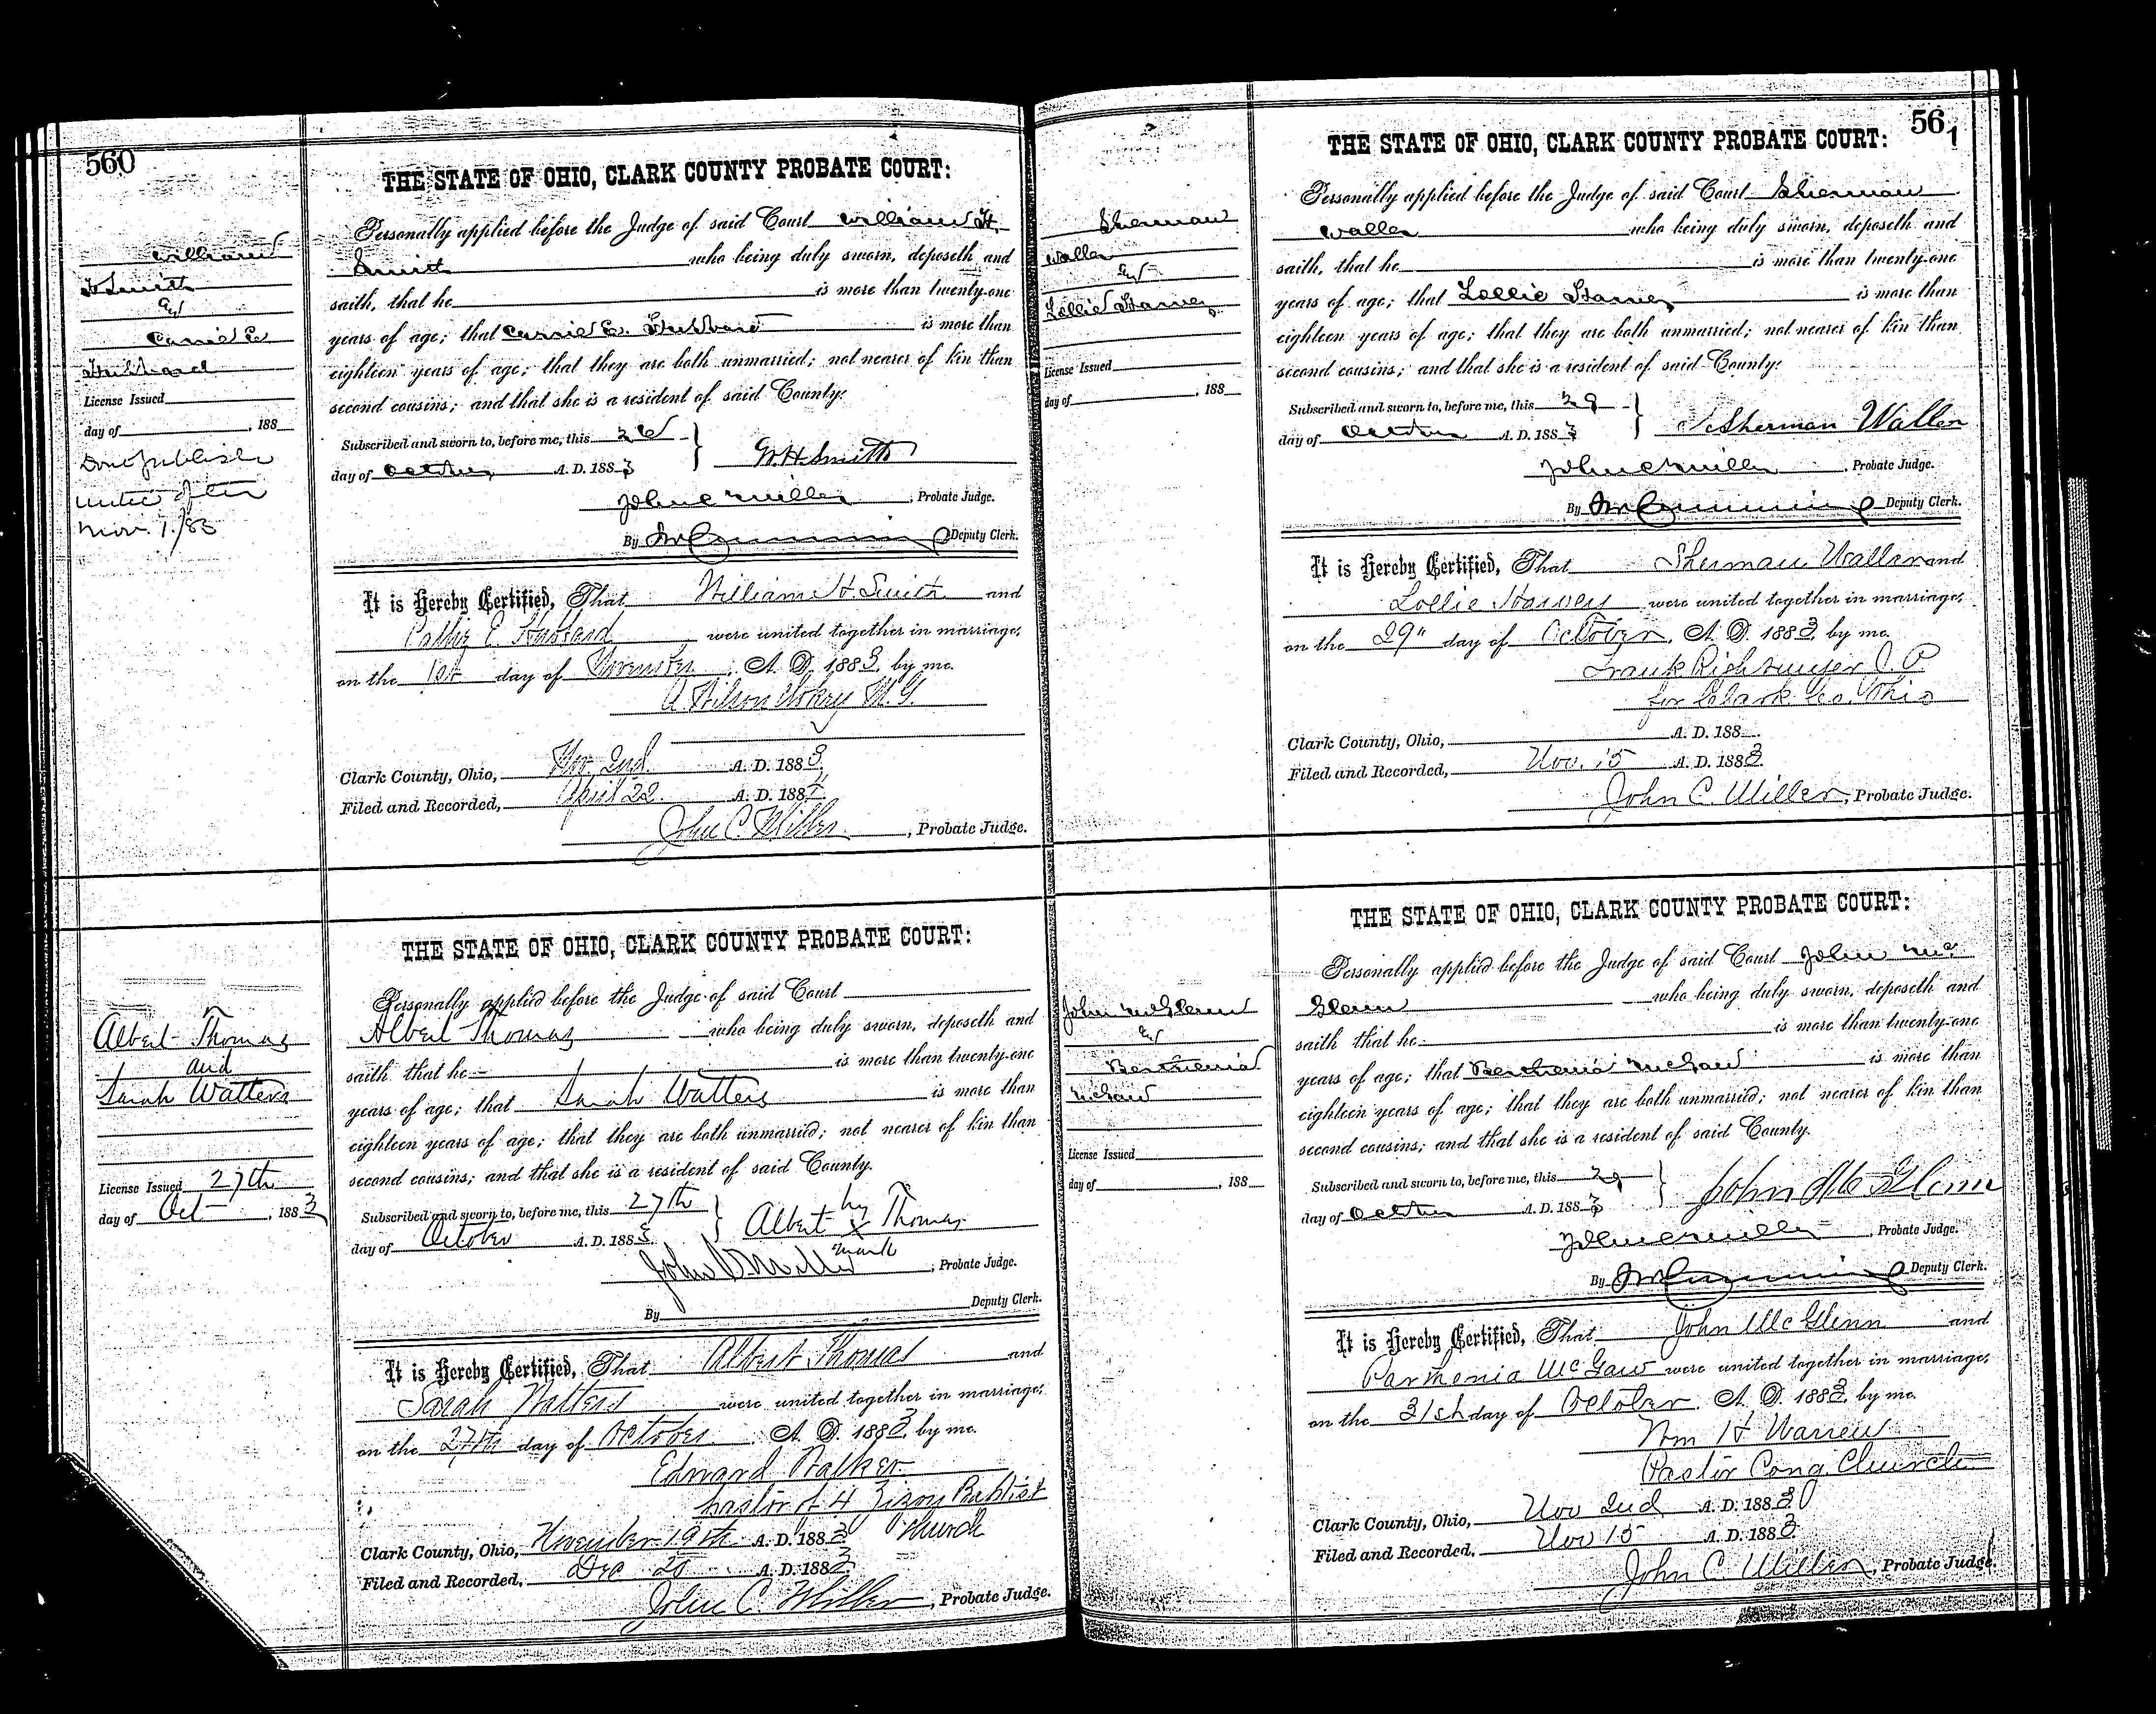 560
William
H Smith
&
Carrie E
Hubbard
License Issued
day of , 188
Dont publish
until after
Nov. 1./83
THE STATE OF OHIO, CLARK COUNTY PROBATE COURT:
Personally applied before the Judge of said Court William H.
Smith who being duly sworn, deposeth and
saith, that he is more than twenty-one
years of age; that Carrie E. Hubbard is more than
eighteen years of age; that they are both unmarried; not nearer of kin than
second cousins; and that she is a resident of said County.
Subscribed and sworn to, before me, this 26
day of October A. D. 1883 W. H. Smith
John C Miller , Probate Judge.
By Deputy Clerk.
It is Hereby Certified, That William H Smith and
E. Hubbard were united together in marriage,
on the 1st day of November A. D. 1883, by me.
A. Wilson M. G.
Clark County, Ohio, Nov 2nd. A. D. 1883.
Filed and Recorded, April 22 A. D. 188
John C. Miller , Probate Judge.
Albert Thomas
and
Sarah Watters
License Issued 27th
day of Oct , 1883
THE STATE OF OHIO, CLARK COUNTY PROBATE COURT:
Personally applied before the Judge of said Court
Albert Thomas who being duly sworn, deposeth and
saith that he is more than twenty-one
years of age; that Sarah Watters is more than
eighteen years of age; that they are both unmarried; not nearer of kin than
second cousins; and that she is a resident of said County.
Subscribed and sworn to, before me, this 27th
day of October A. D. 1883. Albert his x mark Thomas
John C. Miller , Probate Judge.
By Deputy Clerk.
It is Hereby Certified, That Albert Thomas and
Sarah Watters were united together in marriage,
on the 27th day of October A. D. 1883, by me.
Edward Walker
pastor of Zion Baptist
Church
Clark County, Ohio, November 19th A. D. 1883
Filed and Recorded, Dec 20 A. D. 1883
John C. Miller , Probate Judge.
561
Sherman
Waller
&
Lollie Harvey
License Issued
day of , 188
THE STATE OF OHIO, CLARK COUNTY PROBATE COURT:
Personally applied before the Judge of said Court Sherman
Waller who being duly sworn, deposeth and
saith, that he is more than twenty-one
years of age; that Lollie Harvey is more than
eighteen years of age; that they are both unmarried; not nearer of kin than
second cousins; and that she is a resident of said County.
Subscribed and sworn to, before me, this 29
day of October A. D. 1883 Sherman Waller
John C Miller , Probate Judge.
By Deputy Clerk.
It is Hereby Certified, That Sherman Waller and
Lollie Harvey were united together in marriage,
on the 29" day of October, A. D. 1883, by me.
Frank J. P.
for Clark Co. Ohio
Clark County, Ohio, A. D. 188
Filed and Recorded, Nov. 15 A. D. 1883
John C. Miller , Probate Judge.
John McGlenn
&
Barthenia
McGaw
License Issued
day of , 188
THE STATE OF OHIO, CLARK COUNTY PROBATE COURT:
Personally applied before the Judge of said Court John Mc
Glenn who being duly sworn, deposeth and
saith that he is more than twenty-one
years of age; that Barthenia McGaw is more than
eighteen years of age; that they are both unmarried; not nearer of kin than
second cousins; and that she is a resident of said County.
Subscribed and sworn to, before me, this 29
day of October A. D. 1883 John McGlenn
John C Miller , Probate Judge.
By Deputy Clerk.
It is Hereby Certified, That John McGlenn and
Parthenia McGaw were united together in marriage,
on the 31st day of October, A. D. 1883, by me.
Wm H Warren
Pastor Cong. Church
Clark County, Ohio, Nov 2nd A. D. 1883
Filed and Recorded, Nov 15 A. D. 1883
John C. Miller , Probate Judge.